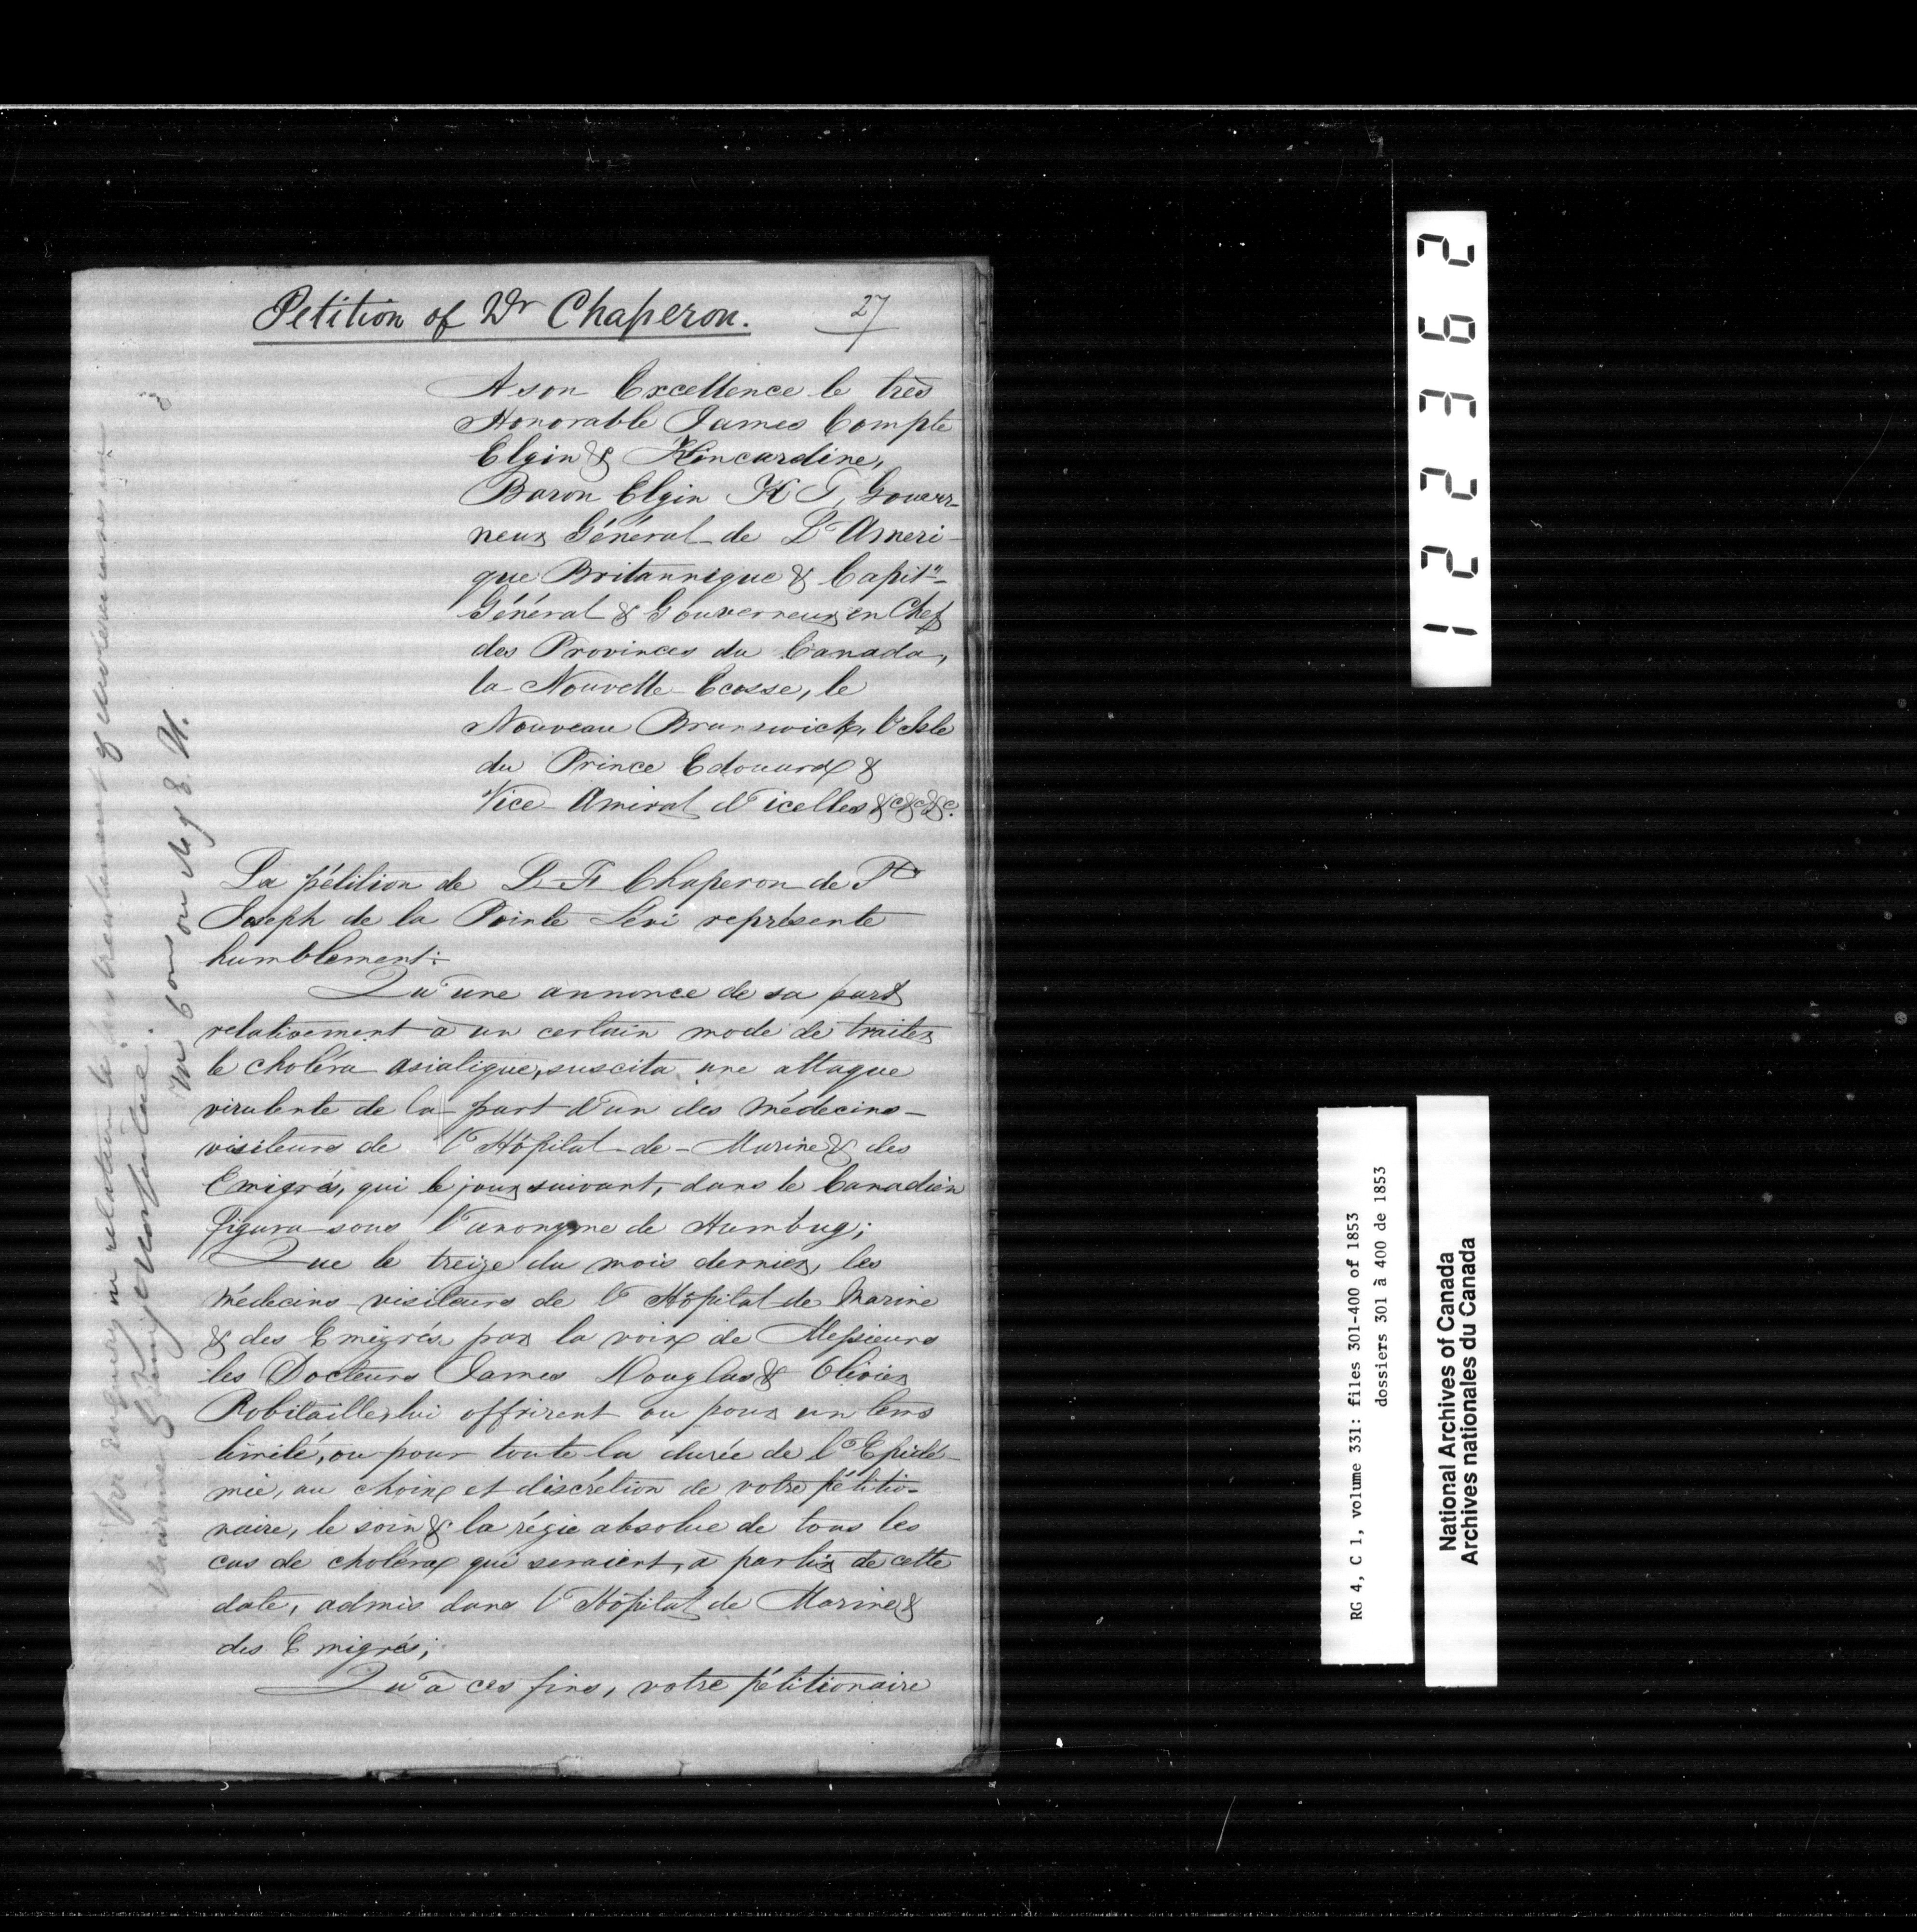 Petition of Dr Chaperon.
27
A son Excellence le très
Honorable James Compte
Elgin & Kincardine,
Baron Elgin K T, Gouver-
neur Général de L'Ameri-
que Britannique & Capitn-
Général & Gouverneur en Chef
des Provinces du Canada,
la Nouvelle Ecosse, le
Nouveau Brunswick, l'Isle
du Prince Edouard &
Vice-Amiral d'icelles &c&c&c.
La pétition de L. F. Chaperon de St
Joseph de la Pointe Lévi représente
humblement:
Qu'une annonce de sa part
relativement à un certain mode de traiter
le choléra asiatique, suscita une attaque
virulente de la part d'un des Médecins-
visiteurs de l'Hôpital-de-Marine & des
Emigrés, qui le jour suivant, dans le Canadien
figura sous l'anonyme de Humbug;
Que le treize du mois dernier, les
Médecins-visiteurs de l'Hôpital de Marine
& des Emigrés par la voix de Messieurs
les Docteurs James Douglas & Olivier
Robitaille, lui offrirent ou pour un tems
limité, ou pour toute la durée de l'Epidé-
mie, au choix et discrétion de votre pétitio-
naire, le soin & la régie absolue de tous les
cas de choléra qui seraient, à partir de cette
date, admis dans l'Hôpital de Marine &
des Emigrés;
Qu'à ces fins, votre pétitionaire
122362
RG 4, C 1, volume 331: files 301-400 of 1853
dossiers 301 à 400 de 1853
National Archives of Canada
Archives nationales du Canada